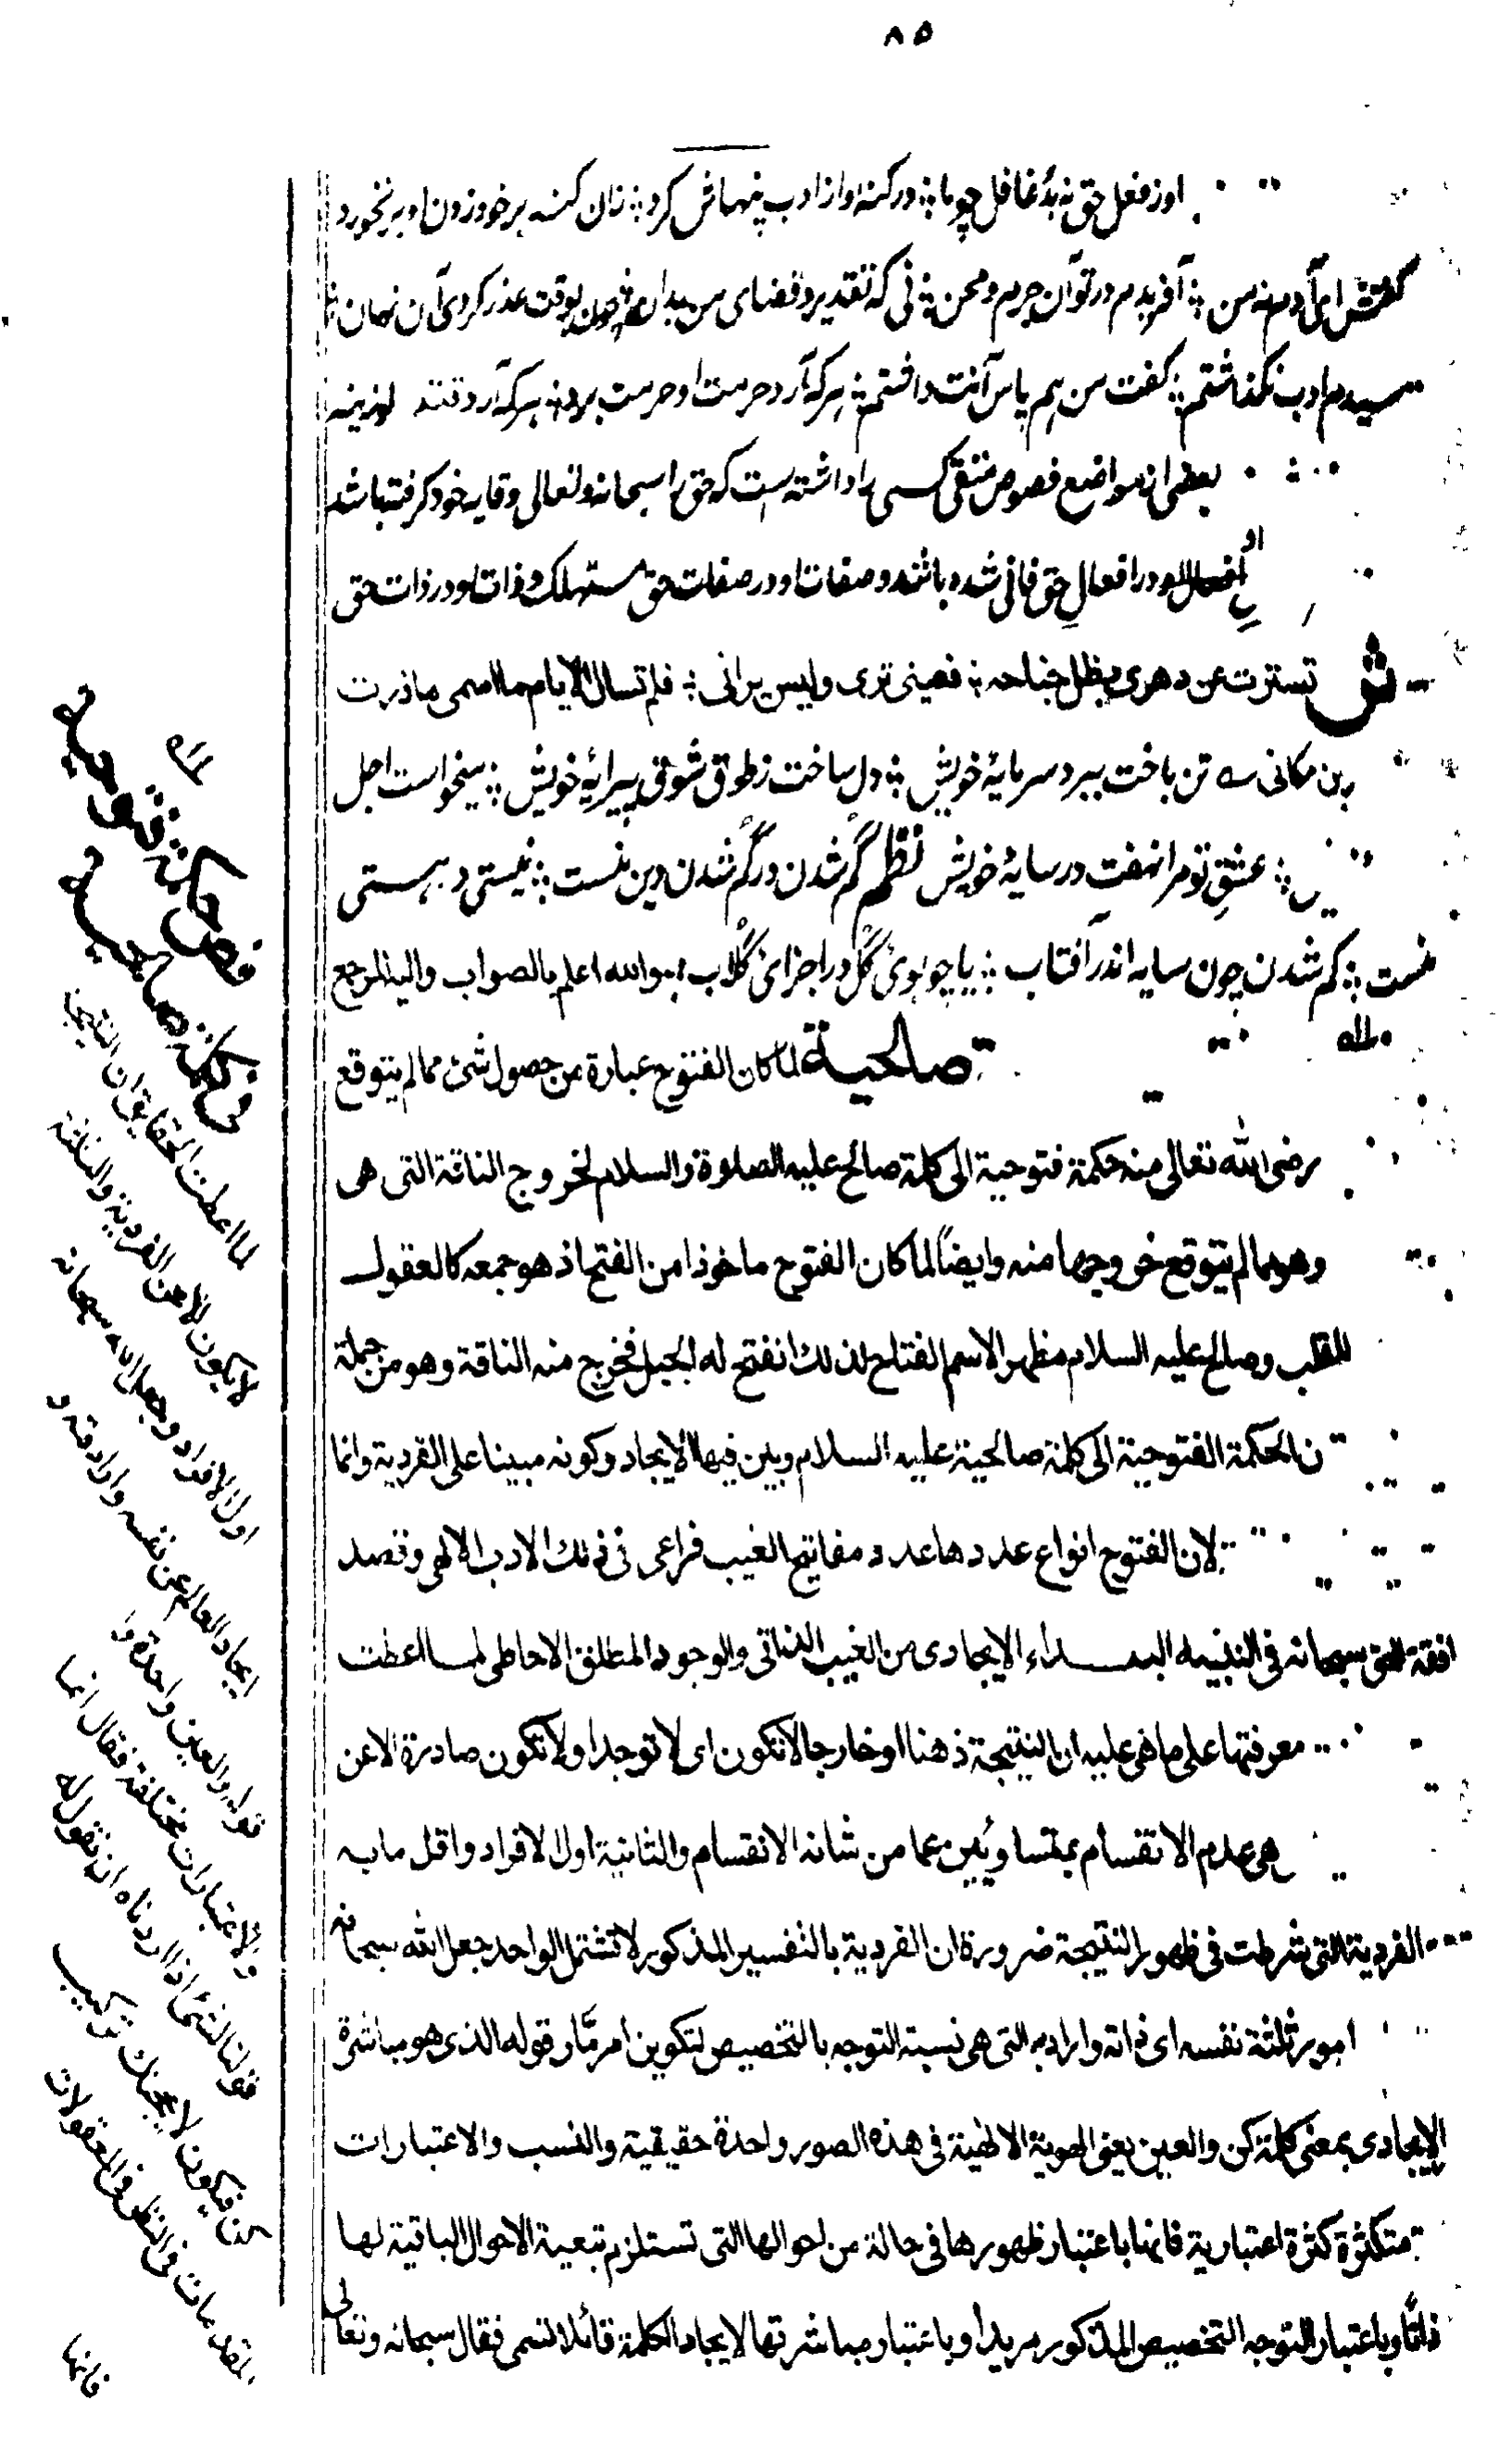 ٨٥
او ز فعل حق نه بد غافل چو ما ؞ در کنه او از ادب پنهانش کرد ؞ زان کنه بر خود زدن او بر نخورد
گفتش ای آدم نه من ؞ آفریدم در تو آن جرم و محن ؞ نی که تقدیر و قضای من بدان ؞ چون بوقت عذر کردی آن نهان ؞
ترسیدم ادب نگذاشتم ؞ گفت من هم پاس آنت داشتم ؞ هر که آرد حرمت او حرمت برد ؞ هر که آرد قند لوزینه
بعضی از مواضع فصوص متقی کسی را داشته است که حق را سبحانه و تعالی وقایه خود گرفته باشد
افعال او در افعال حق فانی شده باشد و صفات او در صفات حق مستهلک و ذات او در ذات حق
ش تسترت عن دهری بظل جناحه ؞ فعینی تری ولیس یرانی ؞ فلم تسال الایام ما اسمی ما درت
این مکانی تن باخت ببرد سرمایهٔ خویش ؞ دل ساخت ز طوق شوق پیرایهٔ خویش ؞ میخواست اجل
؞ عشق تو مرا نهفت در سایهٔ خویش نظم گم شدن در گم شدن دین منست ؞ نیستی در هستی
منست ؞ گم شدن چون سایه اندر آفتاب ؞ یا چو بوی گل در اجزای گلاب ؞ والله اعلم بالصواب والیه المرجع
صالحیة لما کان الفتوح عبارة من حصول شئ مما لم یتوقع
رضی الله تعالی منه حکمة فتوحیة الی کلمة صالح علیه الصلوة والسلام لخروج الناقة التی هی
وهو مما لم یتوقع خروجها منه وایضاً لما کان الفتوح ماخوذا من الفتح اذ هو جمعه کالعقول
للقلب وصالح علیه السلام مظهر الاسم الفتاح لذلك انفتح له الجبل فخرج منه الناقة وهو من جملة
الحکمة الفتوحیة الی کلمة صالحیة علیه السلام وبین فیها الایجاد وکونه مبینا علی الفردیة وانما
لان الفتوح انواع عددها عدد مفاتیح الغیب فراعی فی ذلك الادب الالهی وقصد
افقة الحق سبحانه فی التنبیه البداء الایجادی من الغیب الذاتی والوجود المطلق الاحاطی لما اعطت
معرفتها علی ما هی علیه ان النتیجة ذهنا او خارجا لا تکون ای لا توجد او لا تکون صادرة الا عن
هی عدم الانقسام بمتساویین عما من شانه الانقسام والثانیة اول الافراد واقل ما به
الفردیة التی شرطت فی ظهور النتیجة ضرورة ان الفردیة بالتفسیر المذکور لا تشتمل الواحد جعل الله سبحانه
امور ثلثة نفسه ای ذاته وارادته التی هی نسبة التوجه بالتخصیص لتکوین امر مّا وقوله الذی هو مباشرة
الایجادی بمعنی کلمة کن والعین یعنی الهویة الالهیة فی هذه الصور واحدة حقیقیة والنسب والاعتبارات
متکثرة کثرة اعتباریة فانها باعتبار ظهورها فی حالة من احوالها التی تستلزم تبعیة الاحوال الباقیة لها
ذاتًا وباعتبار التوجه التخصیص المذکور مریدا وباعتبار مباشرتها لایجاد الکلمة قائلا تسمی فقال سبحانه وتعالی
فص حکمة فتوحیة
فی کلمة صالحیة
لما اعطت الحقایق ان النتیجة
لا یکون الا عن الفردیة والثلثة
اول الافراد وجعل الله سبحانه
ایجاد العالم عن نفسه وارادته و
قوله والعین واحدة وا
والاعتبارات مختلفة فقال انما
قولنا لشئ اذا اردناه ان نقول له
کن فیکون لا یحجبك ترکیب
المقدمات فی النظر فی المعقولات
فانها